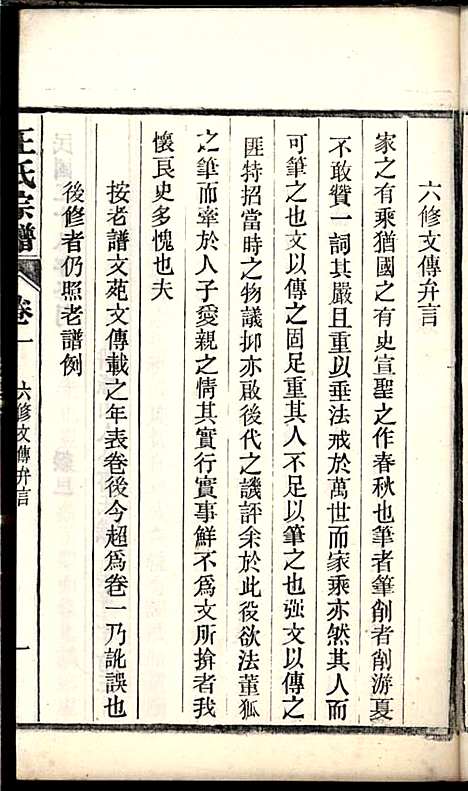 六修文傳弁言
家之有乘猶國之有史宣聖之作春秋也筆者筆削者削游夏
不敢贊一詞其嚴且重以垂法戒於萬世而家乘亦然其人而
可筆之文以傳之固足重其人不足以筆之也强文以傳之
匪特招當時之物議抑亦啟後代之譏評余於此役欲法董狐
之筆而牽於人子愛親之情其實行實事鮮不為文所揜者我
懷良史多愧也夫
按老譜文苑文傳載之年表卷後今超為卷一乃訛誤也
後修者仍照老譜例
王氏宗譜
卷一
六修文傳弁言
一